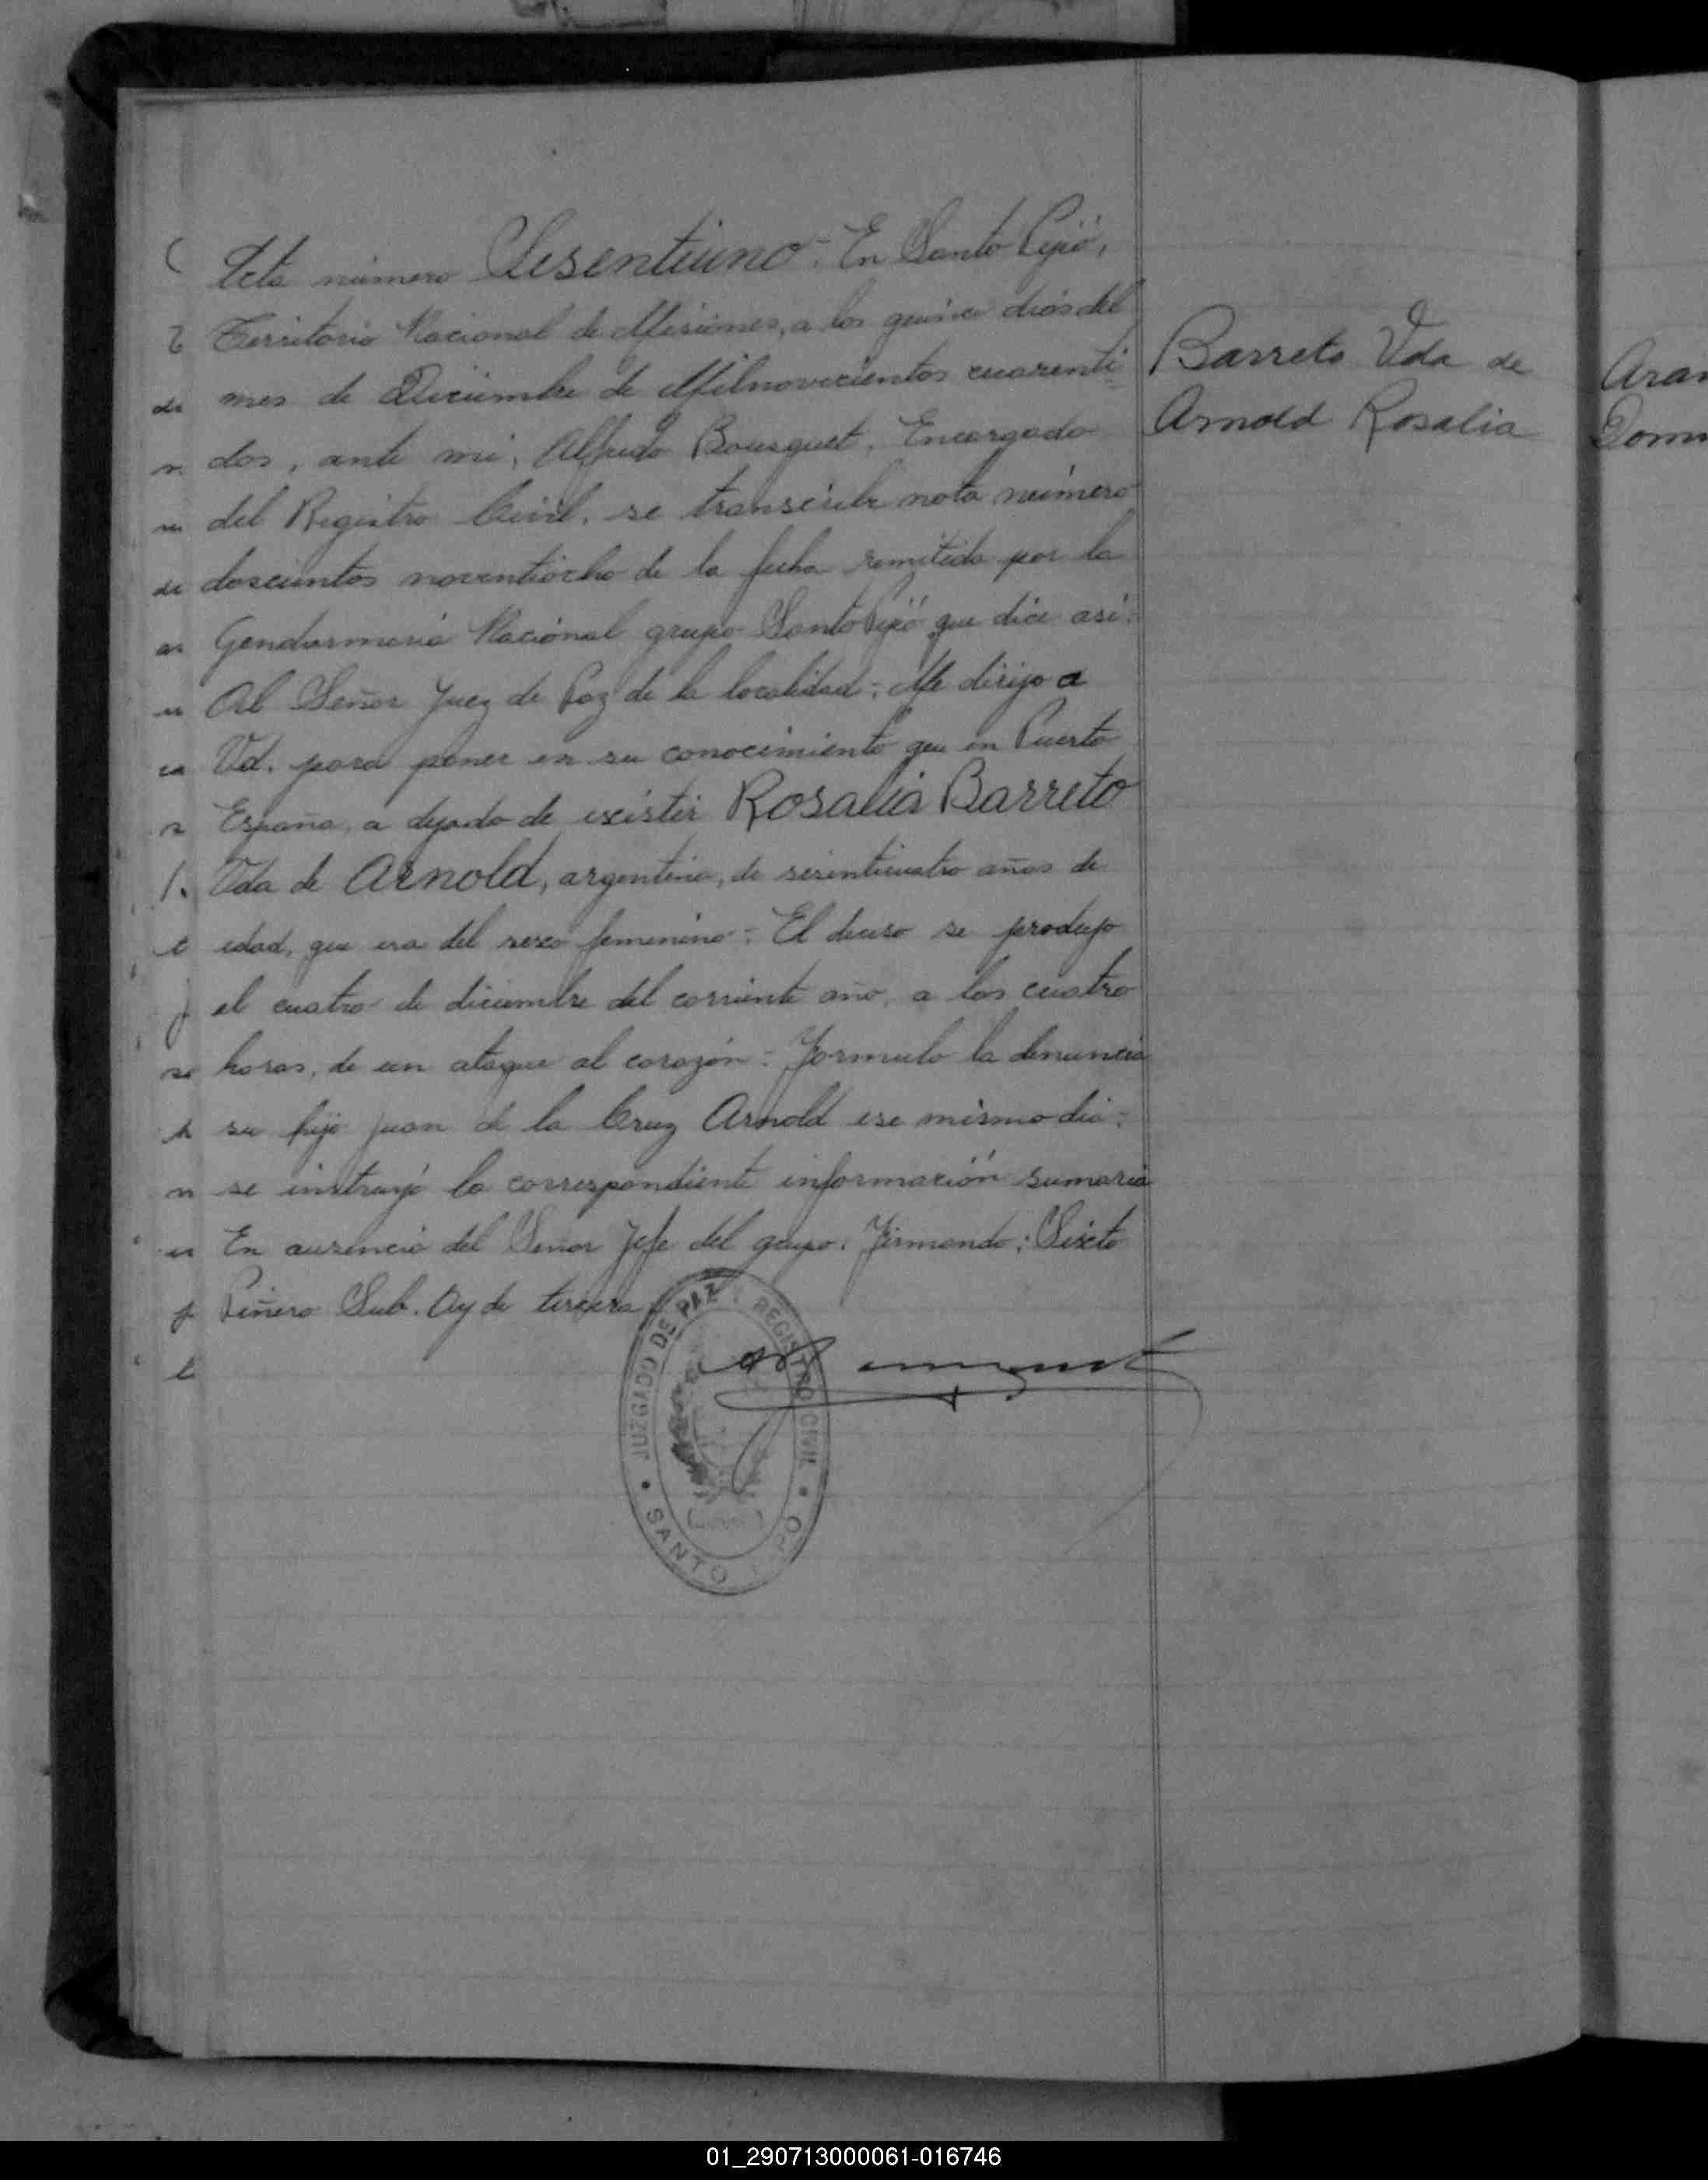 Acta número Sesentiuno = En Santo Pipó,
Territorio Nacional de Misiones, a los quince dias del
mes de Diciembre de Milnovecientos cuarenti=
dos, ante mi, Alfredo Bousquet, Encargado
del Registro Civil, se transcribe nota número
doscientos noventiocho de la fecha remitida por la
Gendarmeria Nacional grupo Santo Pipó que dice asi:
Al Señor Juez de Paz de la localidad = Me dirijo a
Vd. para poner en su conocimiento que en Puerto
España, a dejado de existir Rosalia Barreto
Vda de Arnold, argentina, de sesenticuatro años de
edad, que era del sexo femenino = El deceso se produjo
el cuatro de diciembre del corriente año, a las cuatro
horas, de un ataque al corazón = Formulo la denuncia
su hijo Juan de la Cruz Arnold ese mismo dia =
se instruyó la correspondiente información sumaria
En ausencia del Señor Jefe del grupo. Firmando: Sixto
Piñero Sub. Ay de tercera
Barreto Vda de
Arnold Rosalia
JUZGADO DE PAZ Y REGISTRO CIVIL
SANTO PIPO
01_290713000061-016746